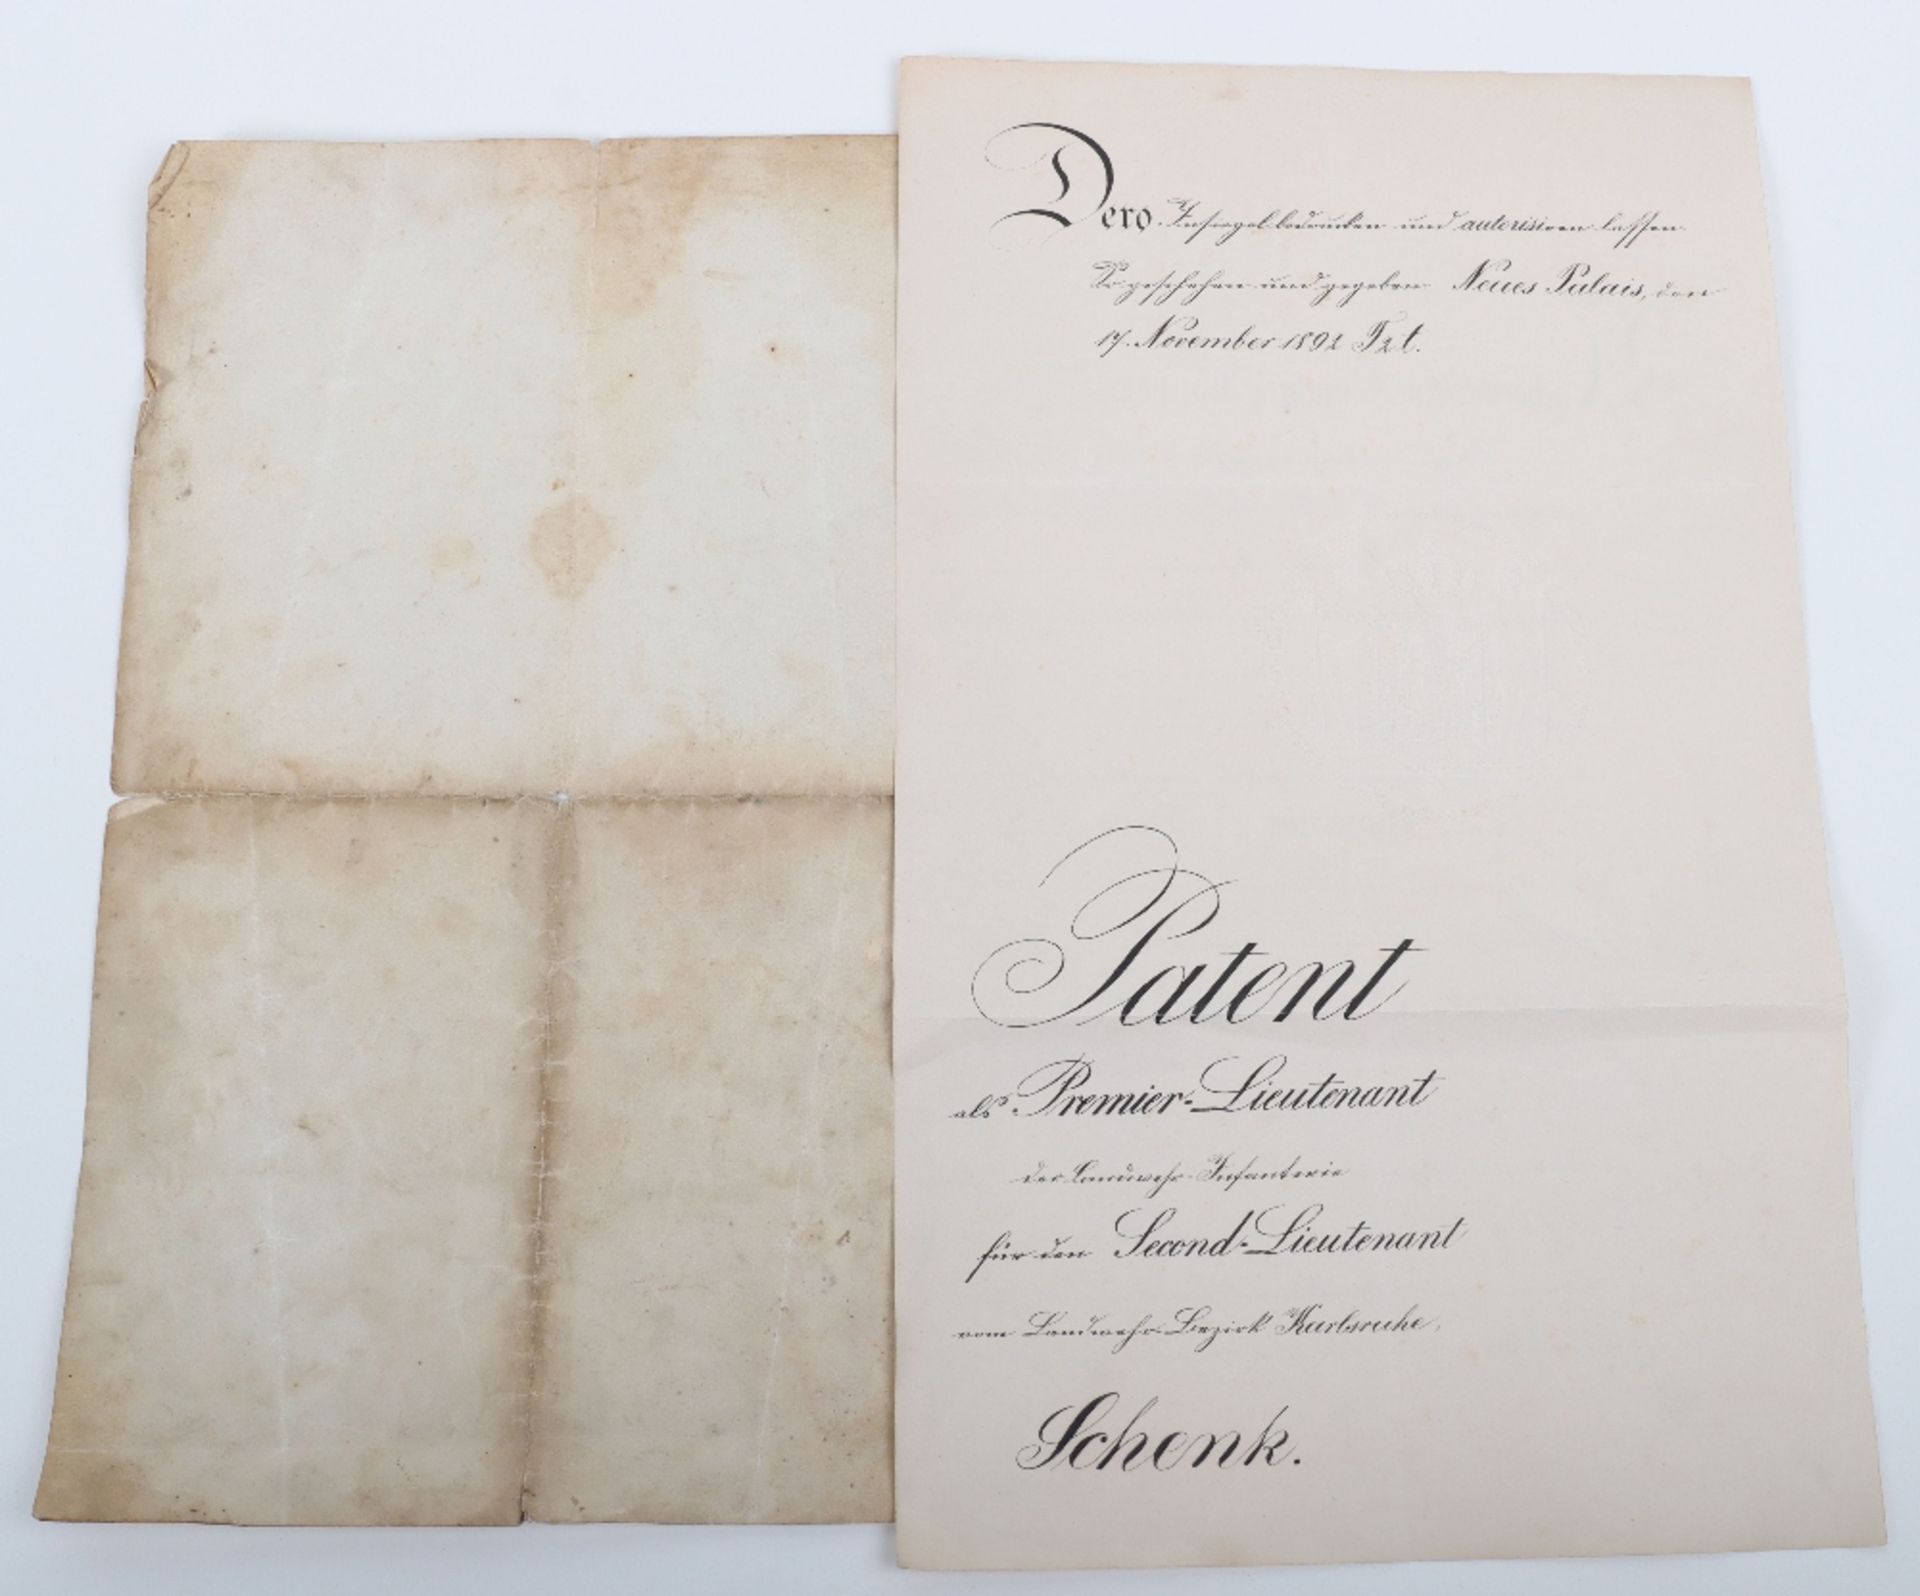 Dero Insiegel bedrucken und autorisiren lassen
So geschehen und gegeben Neues Palais, den
17. November 1892 T2t.
Patent
als Premier-Lieutenant
der Landwehr-Infanterie
für den Second-Lieutenant
vom Landwehr-Bezirk Karlsruhe,
Schenk.